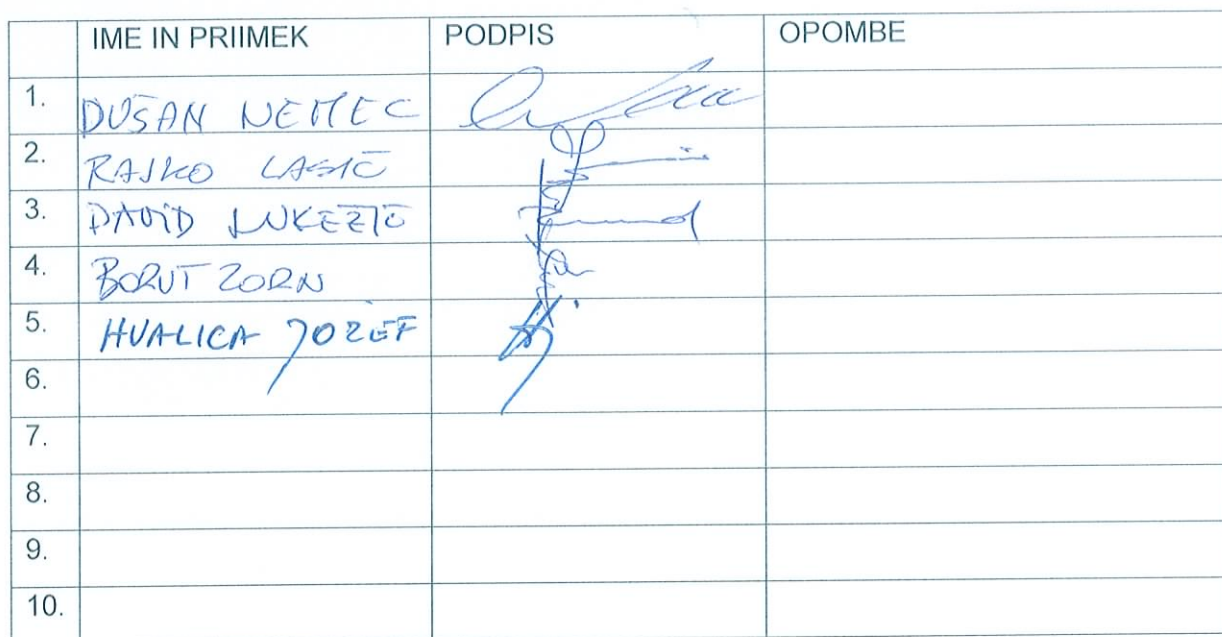 IME IN PRIIMEK PODPIS OPOMBE
1. DUŠAN NEMEC
2. RAJKO LASIČ
3. DAVID LUKEŽIČ
4. BORUT ZORN
5. HVALICA JOŽEF
6.
7.
8.
9.
10.